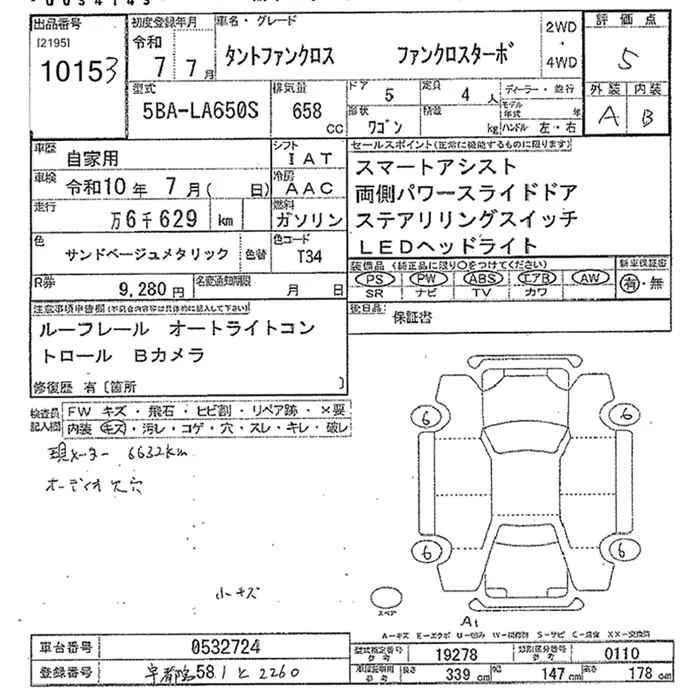 出品番号 初度登録年月 車名・グレード 2WD 評価点
[2195] 令和 タントファンクロス ファンクロスターボ ・ 5
10153 7年 7月 4WD
型式 排気量 ドア 定員 ディーラー・並行 外装 内装
5BA-LA650S 658 CC 5 4人 モデル年式 年 A B
形状 ワゴン 積載 kg ハンドル 左・右
車歴 自家用 シフト IAT セールスポイント(正常に機能するものに限ります)
車検 令和10年 7月( 日) 冷房 AAC スマートアシスト
走行 万6千629 km 燃料 ガソリン 両側パワースライドドア
色 サンドベージュメタリック 色替 色コード T34 ステアリリングスイッチ
LEDヘッドライト
R券 9,280円 名変通知期限 月 日 装備品(純正品に限り○をつけてください) 新車保証書
PS PW ABS エアB AW 有・無
SR ナビ TV カワ
注意事項申告欄(不具合内容は具体的に記入して下さい) 後日品 保証書
ルーフレール オートライトコン
トロール Bカメラ
修復歴 有〔箇所 〕
検査員記入欄 FW キズ・飛石・ヒビ割・リペア跡・×要
内装 キズ・汚レ・コゲ・穴・スレ・キレ・破レ
現メーター 6632km
オーディオ欠穴
小キズ
6 6
6 6
スペア
A1
A-キズ E-エクボ U-凹み W-補修跡 S-サビ C-腐食 XX-交換済
車台番号 0532724 型式指定番号 参考 19278 類別区分番号 参考 0110
登録番号 宇都宮581 と 2260 長さ 339cm 幅 147cm 高さ 178cm